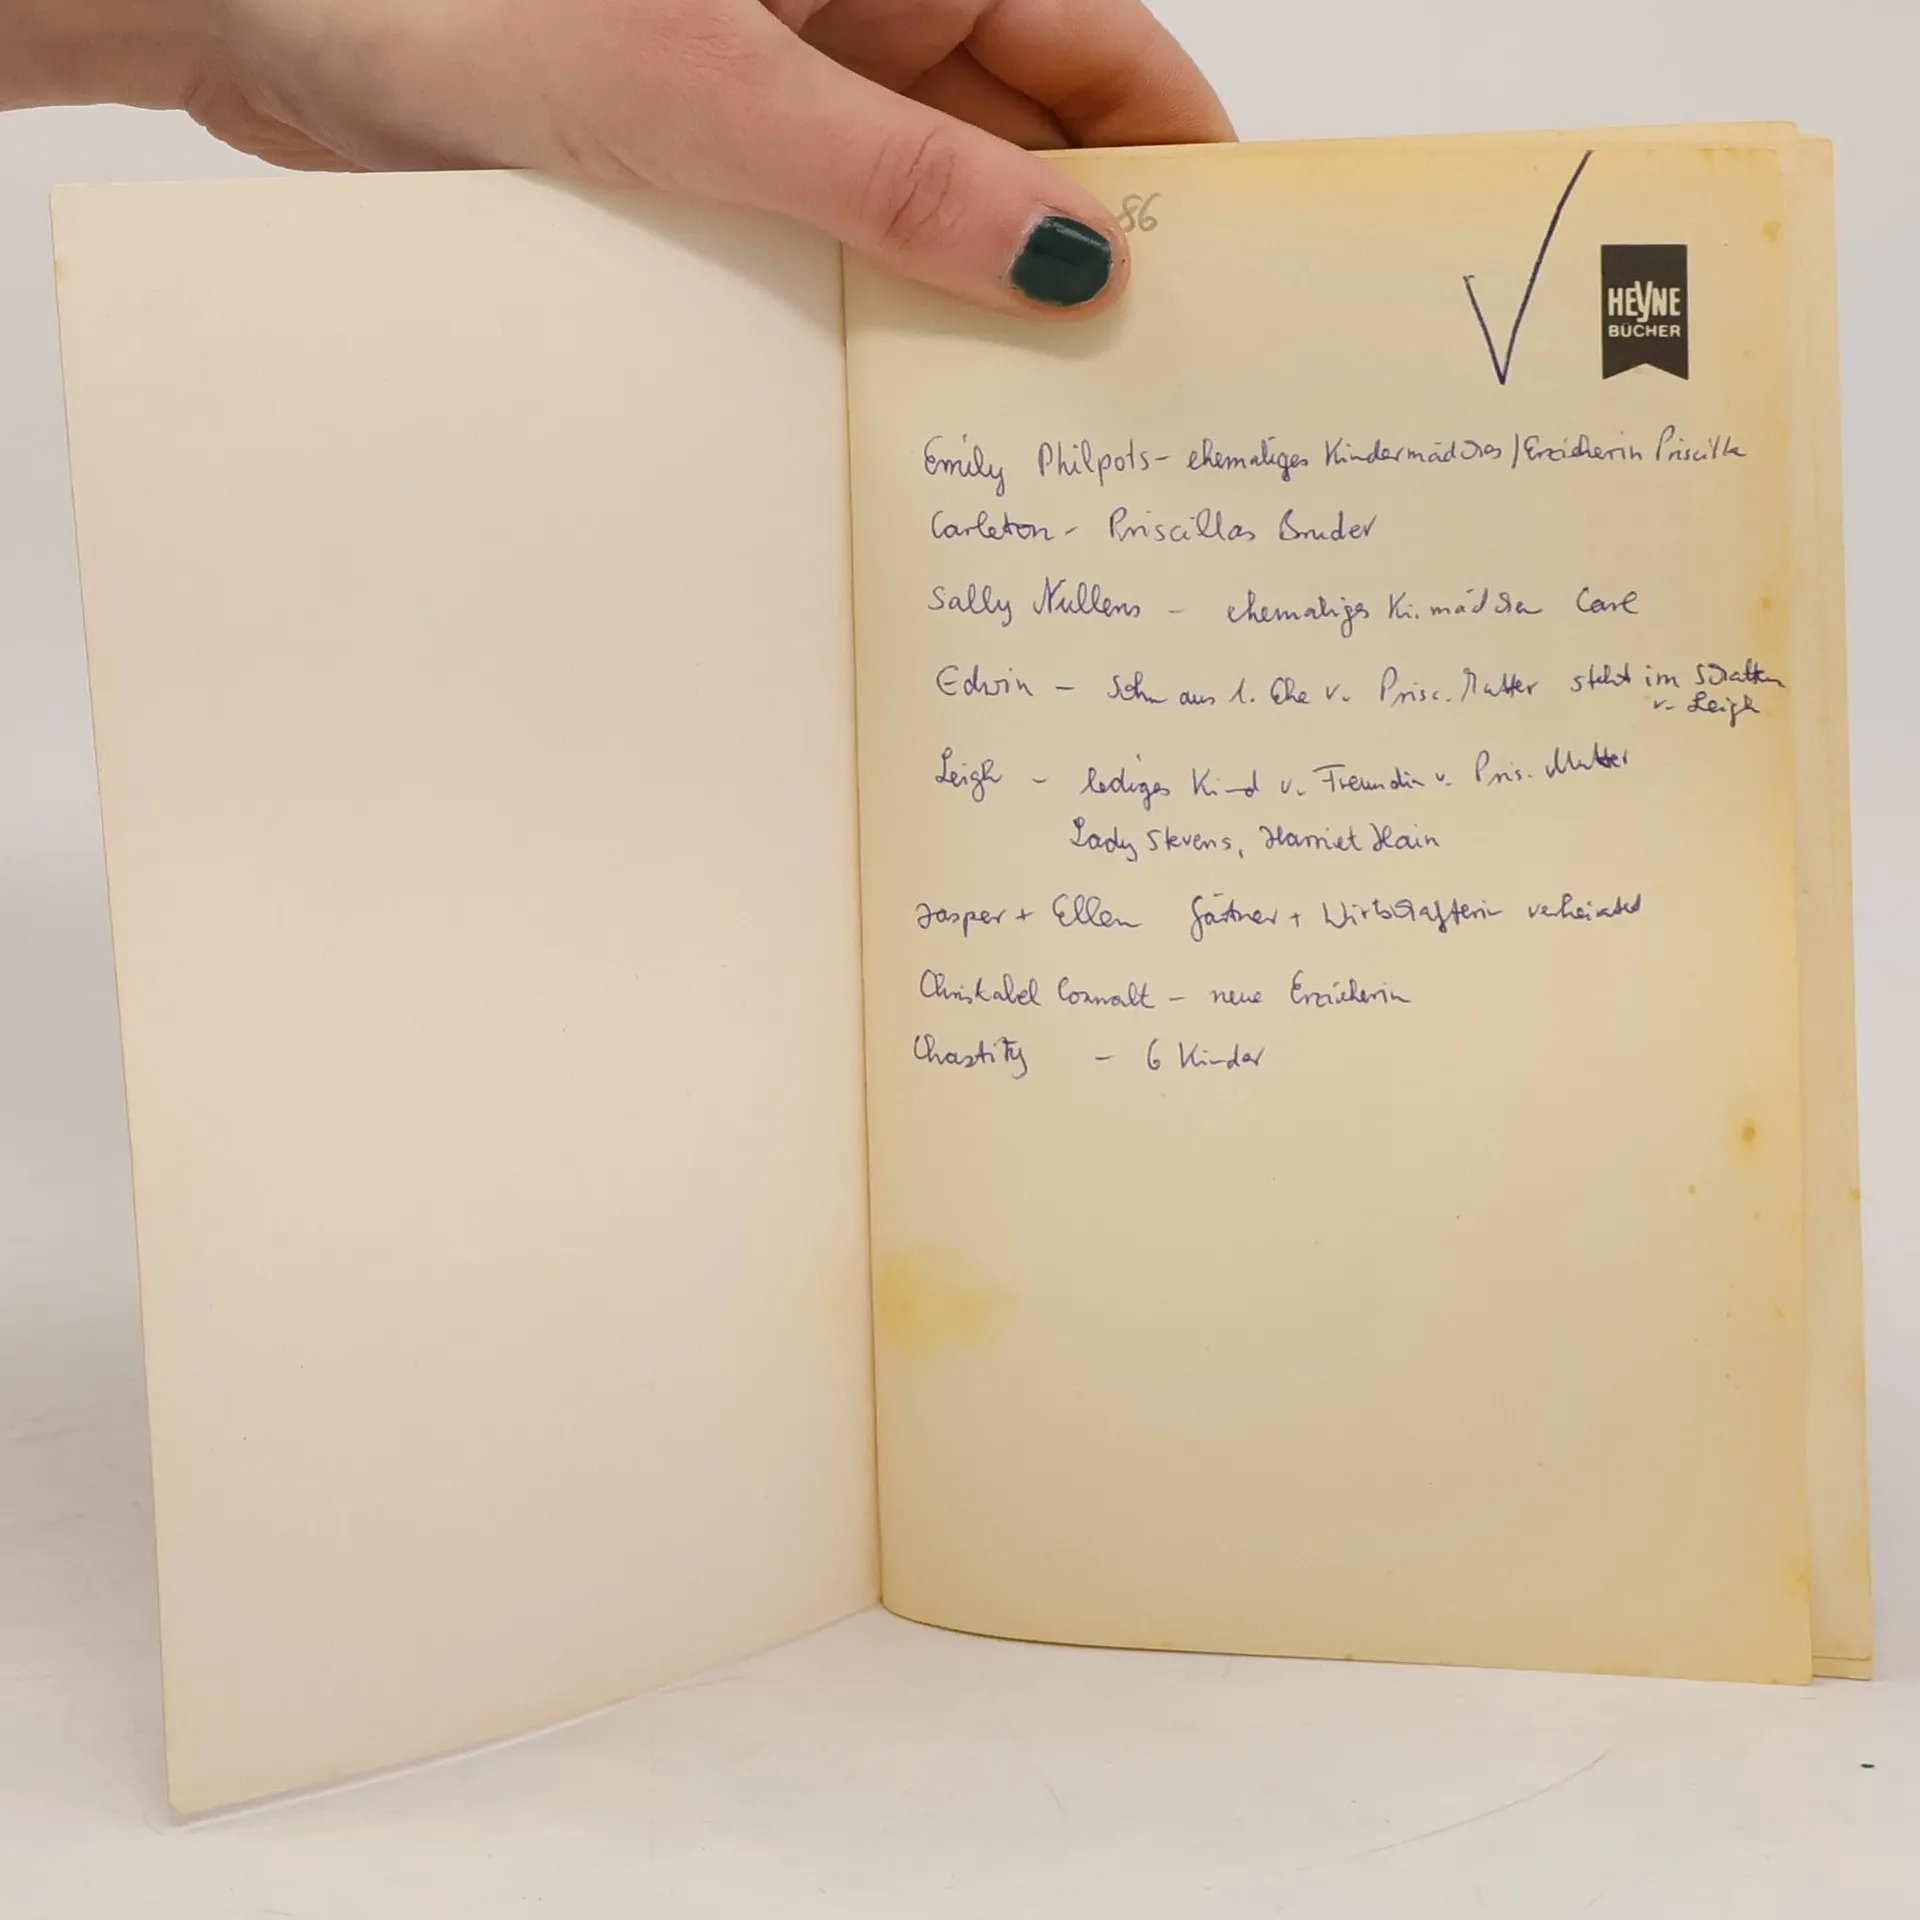 86
HEYNE
BÜCHER
Emily Philpots - ehemaliges Kindermädchen / Erzieherin Priscilla
Carleton - Priscillas Bruder
Sally Nullens - ehemaliges Ki. mädchen Carl
Edwin - Sohn aus 1. Ehe v. Prisc. Mutter steht im Schatten
v. Leigh
Leigh - lediges Kind v. Freundin v. Pris. Mutter
Lady Stevens, Harriet Hain
Jasper + Ellen Gärtner + Wirtschafterin verheiratet
Christabel Connalt - neue Erzieherin
Chastity - 6 Kinder